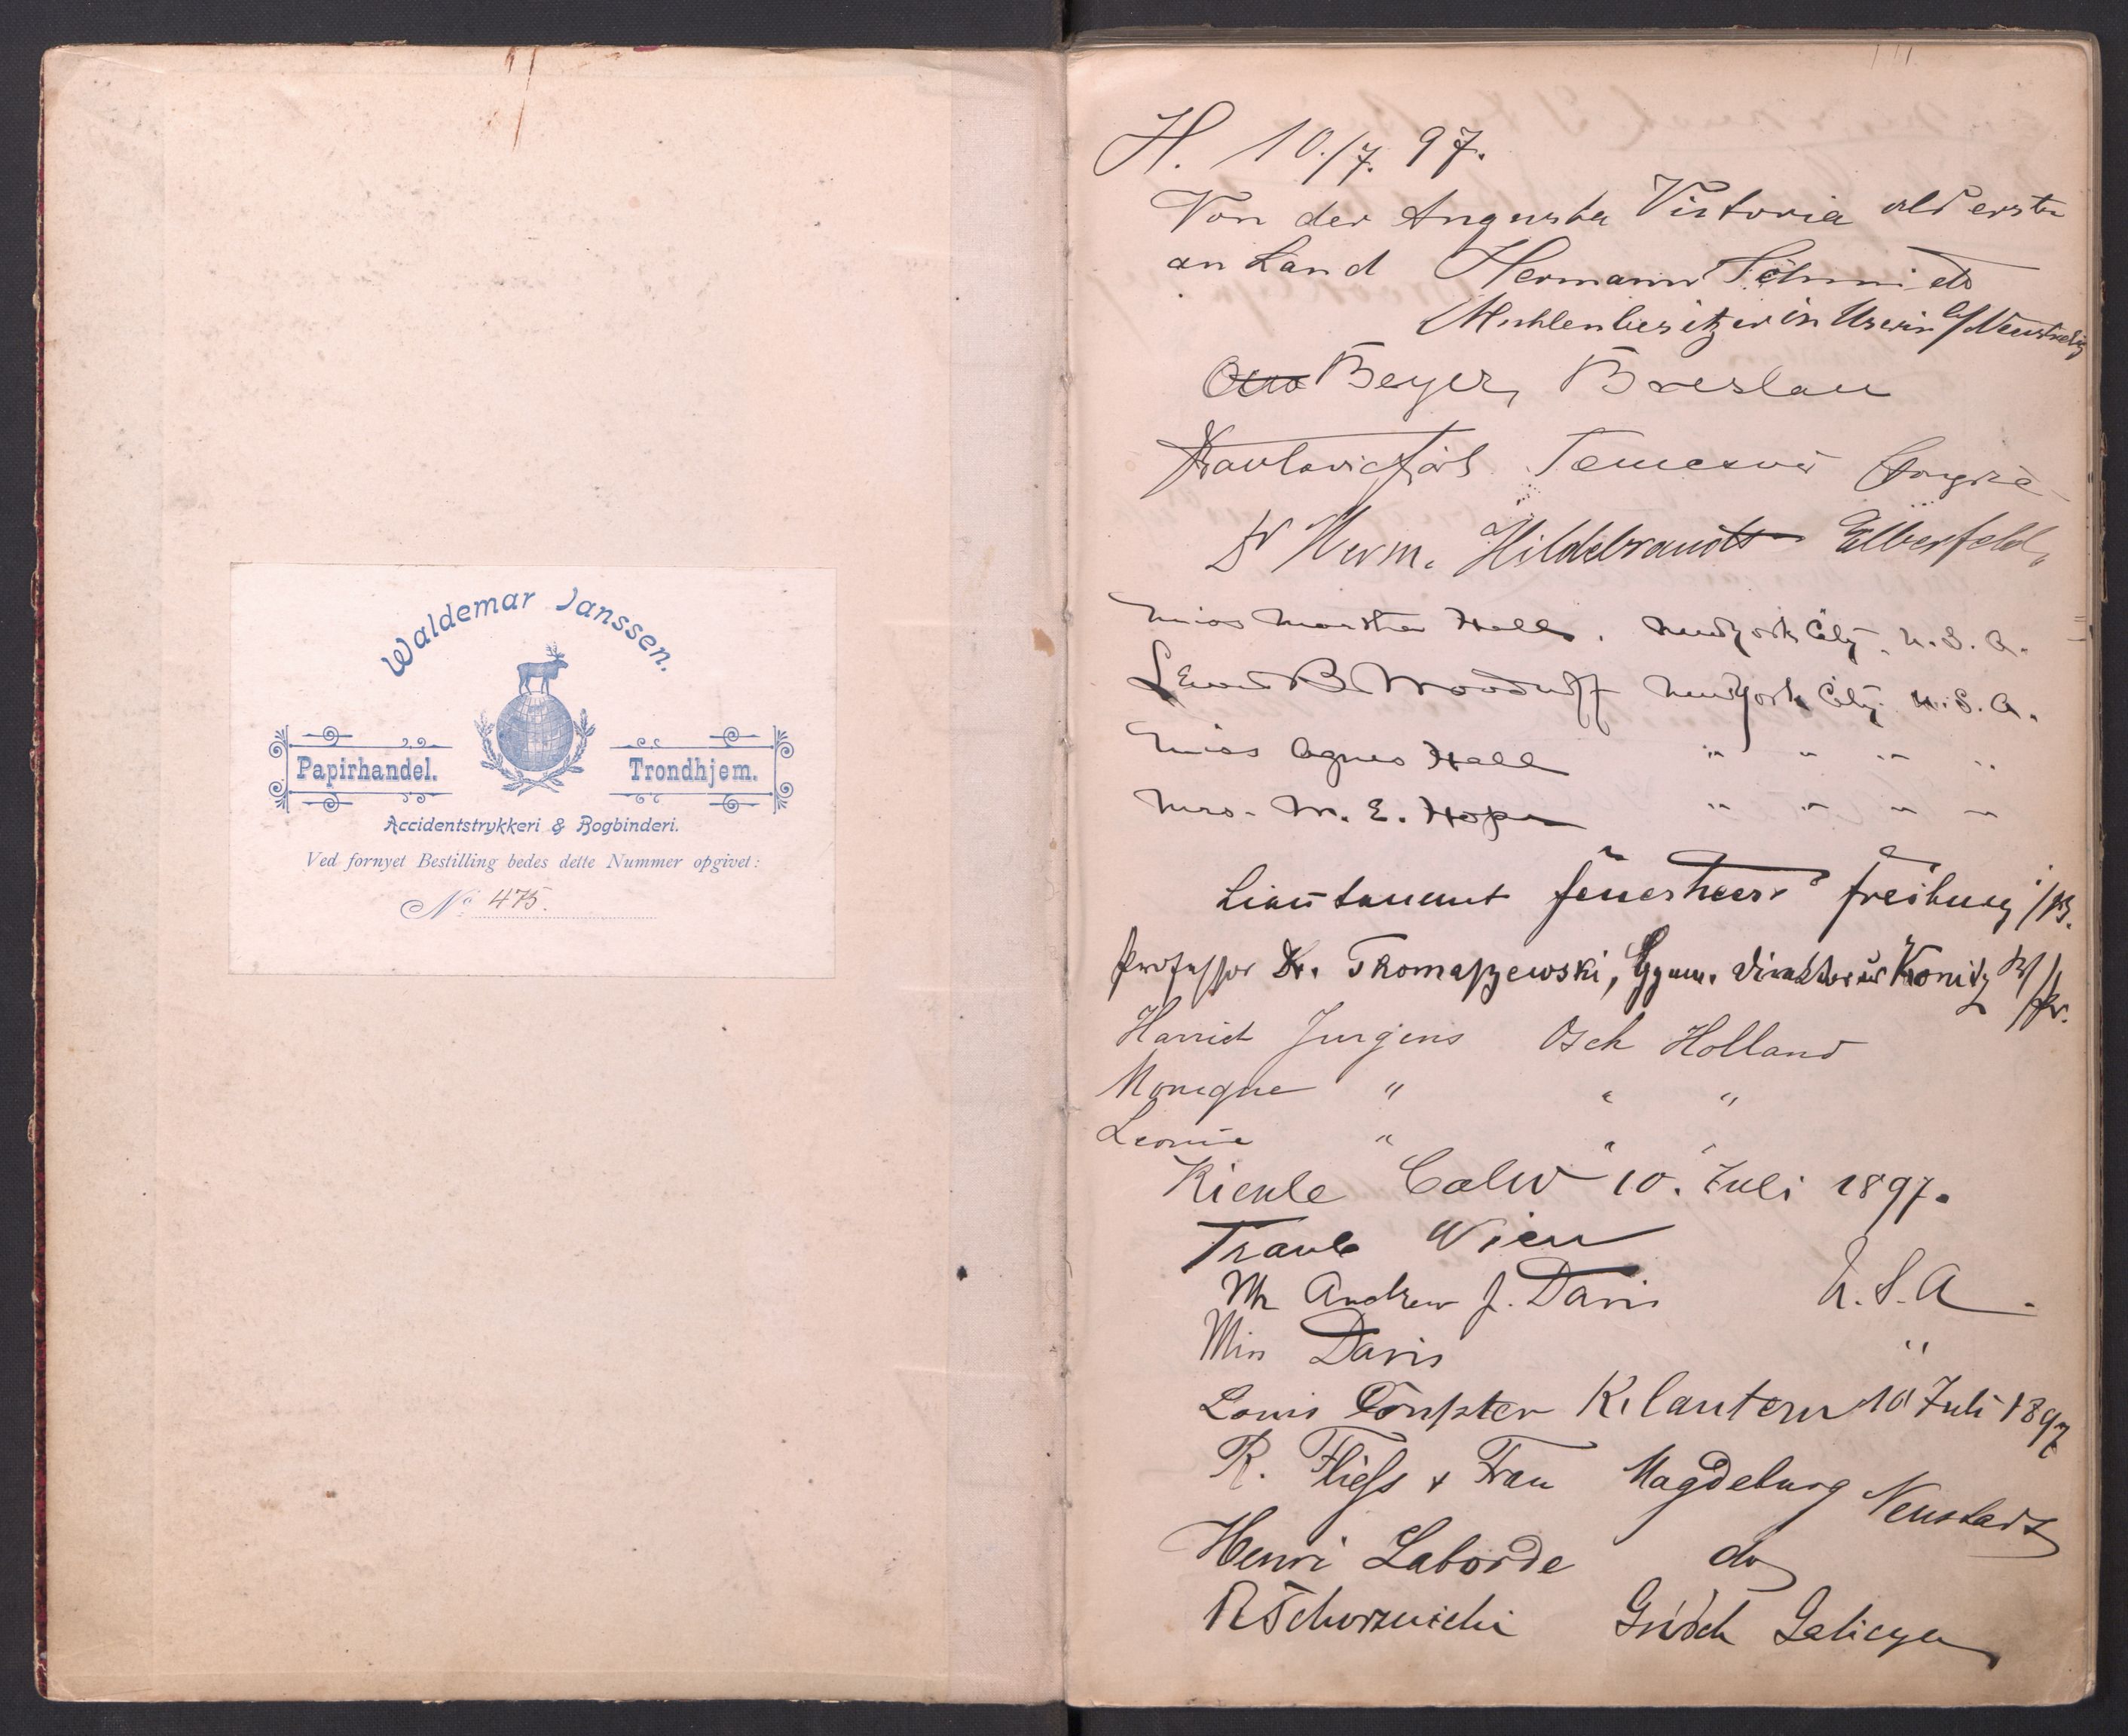 Waldemar Janssen.
Papirhandel. Trondhjem.
Accidentstrykkeri & Bogbinderi.
Ved fornyet Bestilling bedes dette Nummer opgivet:
No. 475.
H. 10./7. 97.
Von der Augusta Victoria als erster
an Land Hermann Schmidt
Mühlenbesitzer in Userin b/Neustrelitz
Otto Beyer, Breslau
Temesvár
Dr Herm. Hildebrandt Elberfeld,
Miss Martha Hall. New York City. U. S. A.
B Woodruff New York City. U. S. A.
Miss Agnes Hall " " " "
Mrs. M. E. Hope " " " "
Lieutenant Feuerheerd Freiburg i/B.
Professor Dr. Thomaszewski, Gymn. Direktor in Konitz W/Pr.
Harriet Jurgens Osch Holland
Monique " " "
Leonie " " "
Kienle Calw 10. Juli 1897.
Traub Wien
Mr Andrew J. Davis U. S. A.
Miss Davis "
Louis K.lautern 10 Juli 1897
R. Fliess + Frau Magdeburg Neustadt
Henri Laborde do